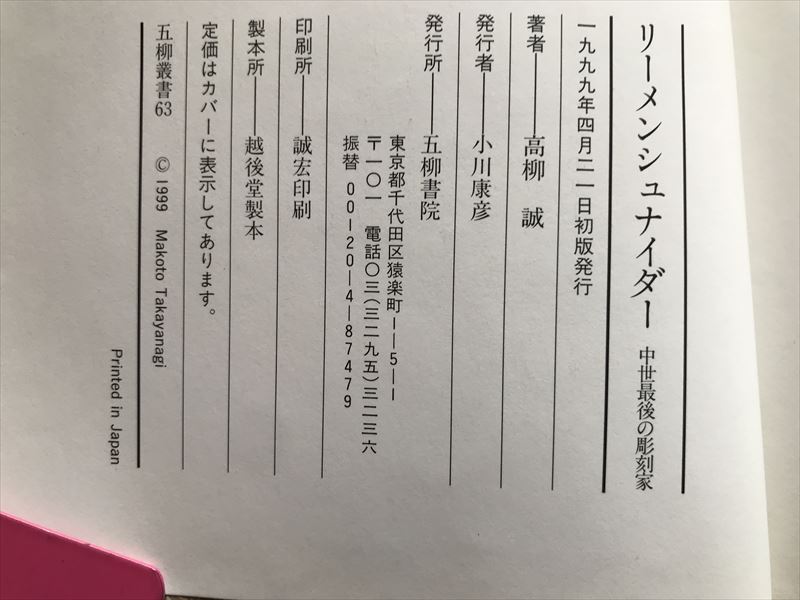 リーメンシュナイダー 中世最後の彫刻家
一九九九年四月二一日初版発行
著者――高柳 誠
発行者――小川康彦
発行所――五柳書院
東京都千代田区猿楽町一―五―一
〒一〇一 電話〇三(三二九五)三二三六
振替 00―20―4―87479
印刷所――誠宏印刷
製本所――越後堂製本
定価はカバーに表示してあります。
五柳叢書63 © 1999 Makoto Takayanagi
Printed in Japan